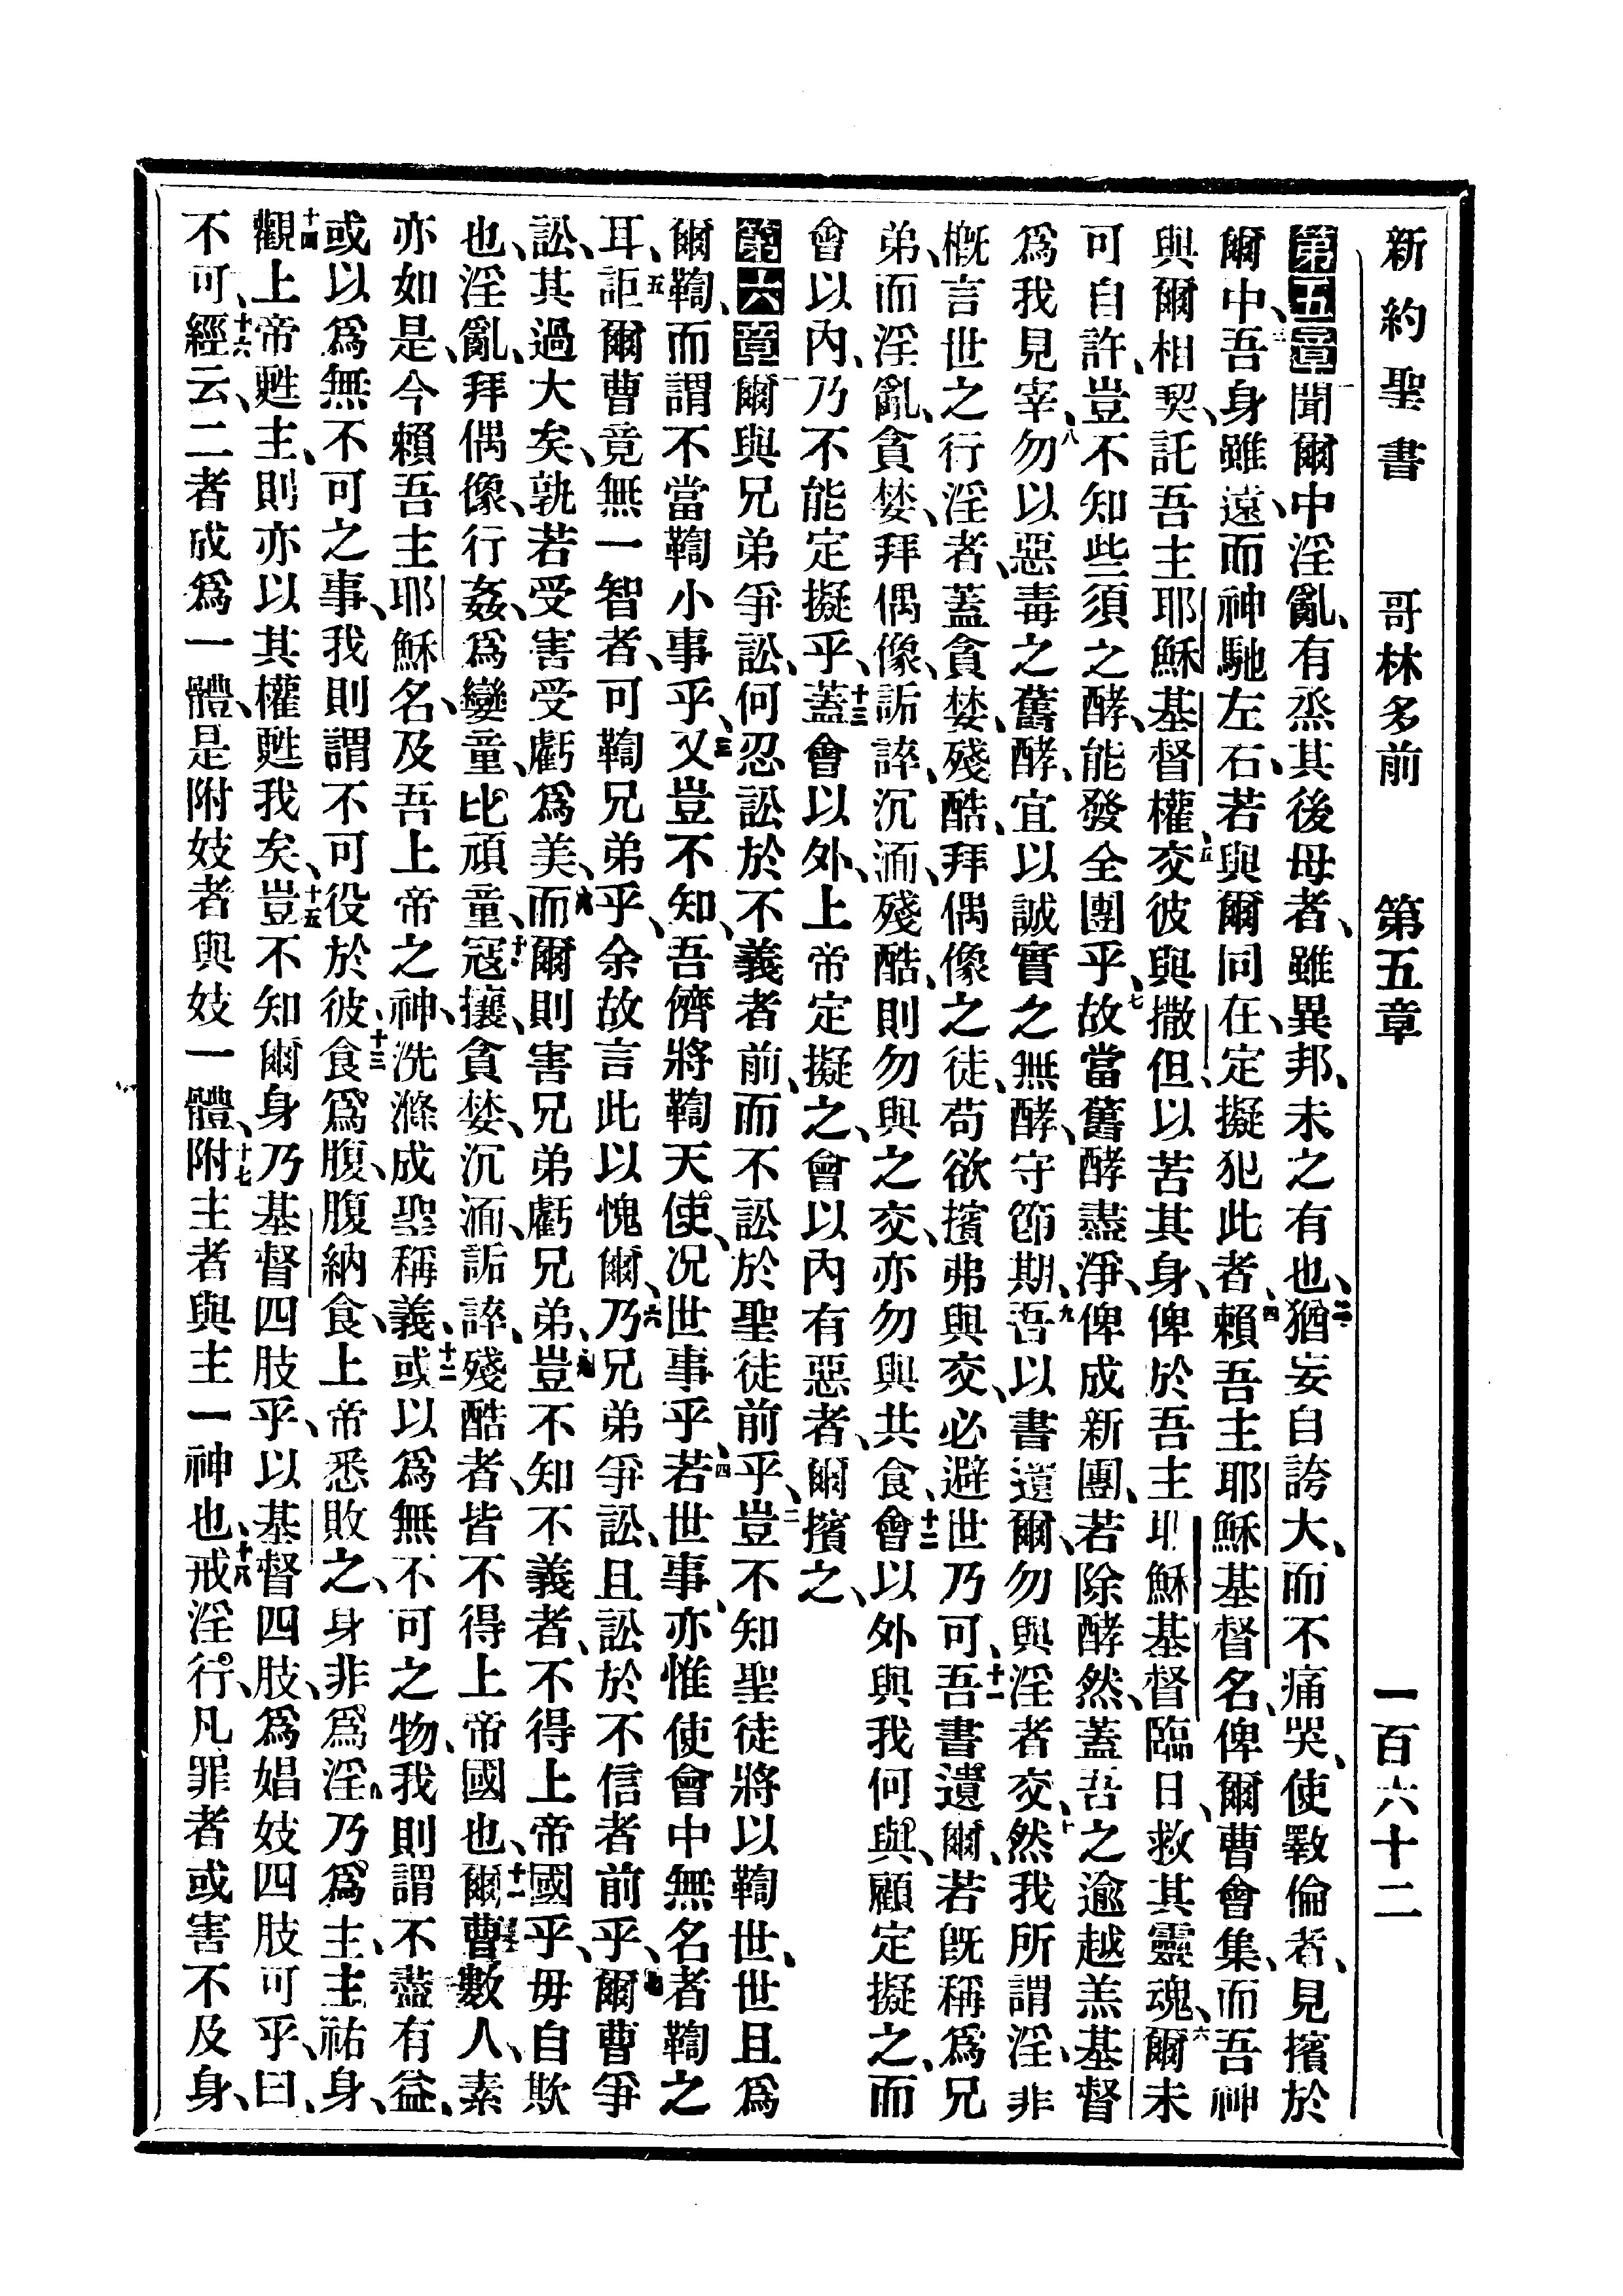 新約聖書 哥林多前 第五章 一百六十二
第五章 一聞爾中淫亂、有烝其後母者、雖異邦、未之有也、二猶妄自誇大、而不痛哭、使斁倫者、見擯於
爾中、三吾身雖遠、而神馳左右、若與爾同在、定擬犯此者、四賴吾主耶穌基督名、俾爾曹會集、而吾神
與爾相契、託吾主耶穌基督權、五交彼與撒但、以苦其身、俾於吾主耶穌基督臨日、救其靈魂、六爾未
可自許、豈不知些須之酵、能發全團乎、七故當舊酵盡淨、俾成新團、若除酵然、蓋吾之逾越羔基督
爲我見宰、八勿以惡毒之舊酵、宜以誠實之無酵、守節期、九吾以書遺爾、勿與淫者交、十然我所謂淫、非
槪言世之行淫者、蓋貪婪、殘酷、拜偶像之徒、苟欲擯弗與交、必避世乃可、十一吾書遺爾、若旣稱爲兄
弟、而淫亂、貪婪、拜偶像、詬誶、沉湎、殘酷、則勿與之交、亦勿與共食、十二會以外與我何與、顧定擬之、而
會以內、乃不能定擬乎、十三蓋會以外、上帝定擬之、會以內有惡者、爾擯之、
第六章 一爾與兄弟爭訟、何忍訟於不義者前、而不訟於聖徒前乎、二豈不知聖徒將以鞫世、世且爲
爾鞫、而謂不當鞫小事乎、三又豈不知、吾儕將鞫天使、况世事乎、四若世事、亦惟使會中無名者鞫之
耳、五詎爾曹竟無一智者、可鞫兄弟乎、余故言此以愧爾、六乃兄弟爭訟、且訟於不信者前乎、七爾曹爭
訟、其過大矣、孰若受害受虧爲美、八而爾則害兄弟虧兄弟、九豈不知不義者、不得上帝國乎、毋自欺
也、淫亂、拜偶像、行姦、爲孌童、比頑童、十寇攘、貪婪、沉湎、詬誶、殘酷者、皆不得上帝國也、十一爾曹數人、素
亦如是、今賴吾主耶穌名、及吾上帝之神、洗滌成聖稱義、十二或以爲無不可之物、我則謂不盡有益、
或以爲無不可之事、我則謂不可役於彼、十三食爲腹、腹納食、上帝悉敗之、身非爲淫、乃爲主、主祐身、
十四觀上帝甦主、則亦以其權甦我矣、十五豈不知爾身乃基督四肢乎、以基督四肢、爲娼妓四肢可乎、曰、
不可、十六經云、二者成爲一體、是附妓者與妓一體、十七附主者與主一神也、十八戒淫行、凡罪者或害不及身、